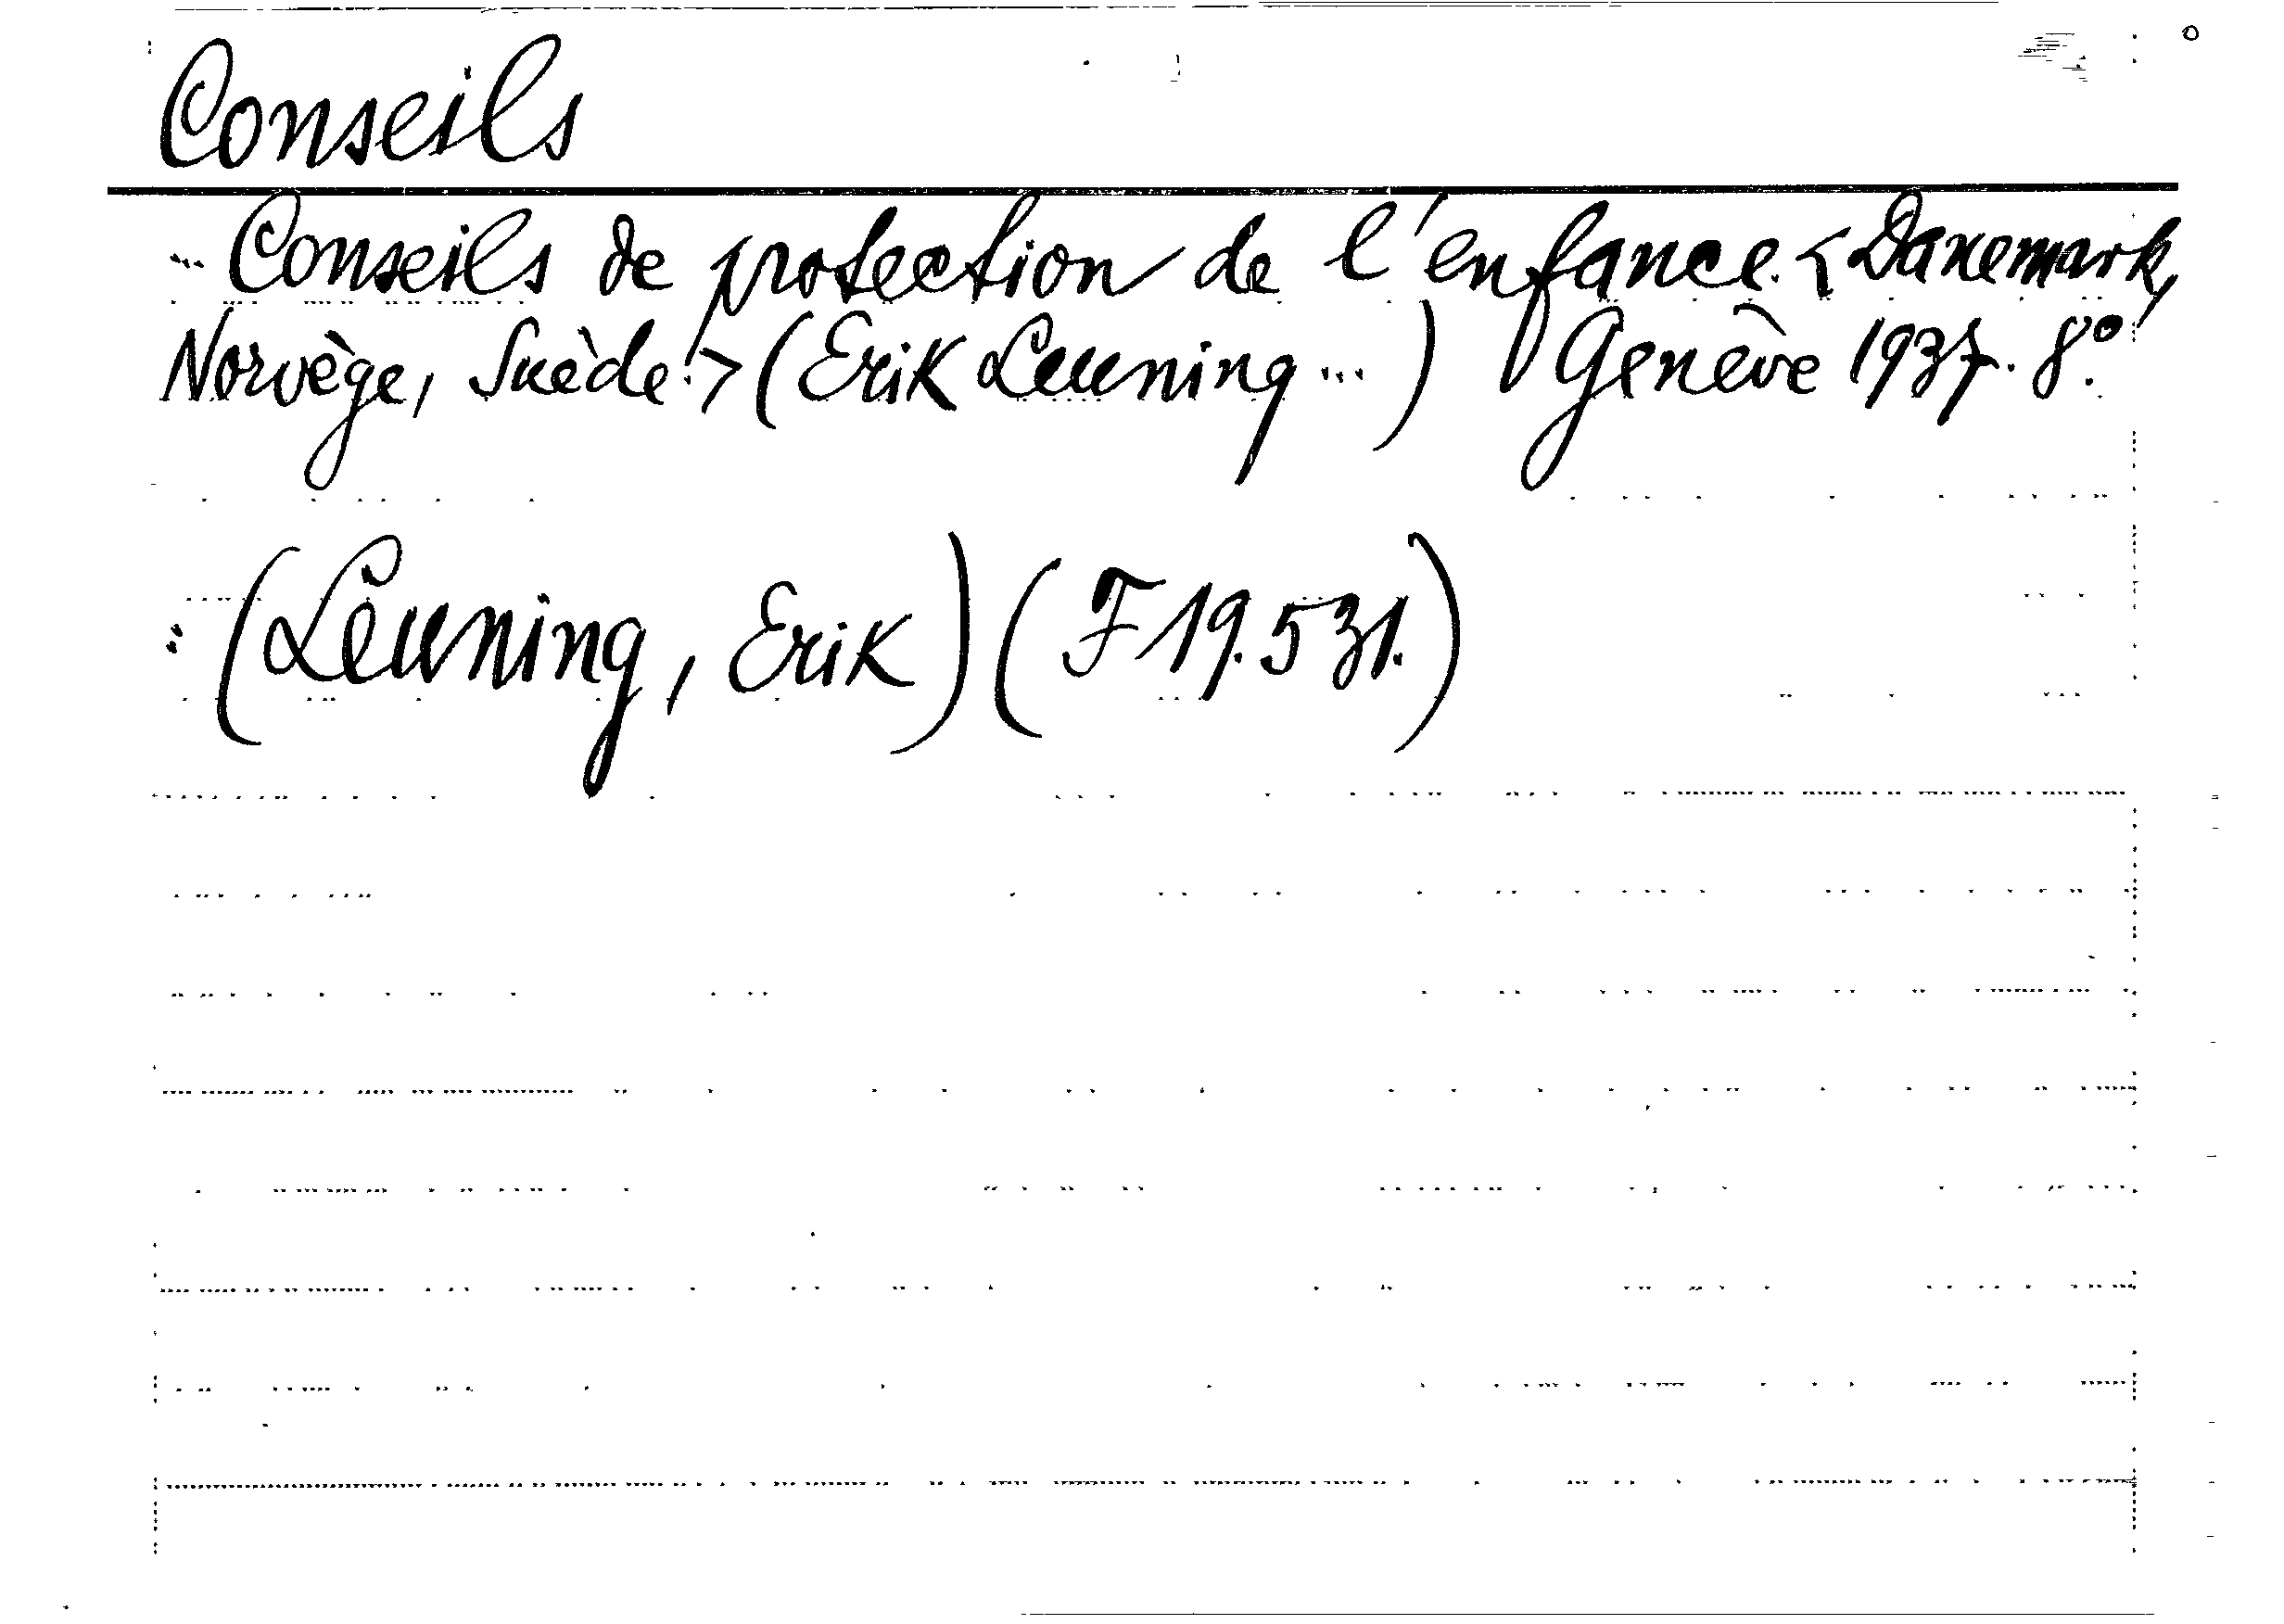 Conseils
... Conseils de protection de l'enfance. <Danemark,
Norvège, Suède.> (Erik Leuning ...) Genève 1937. 8°.
: (Leuning, Erik) (F 19.531.)